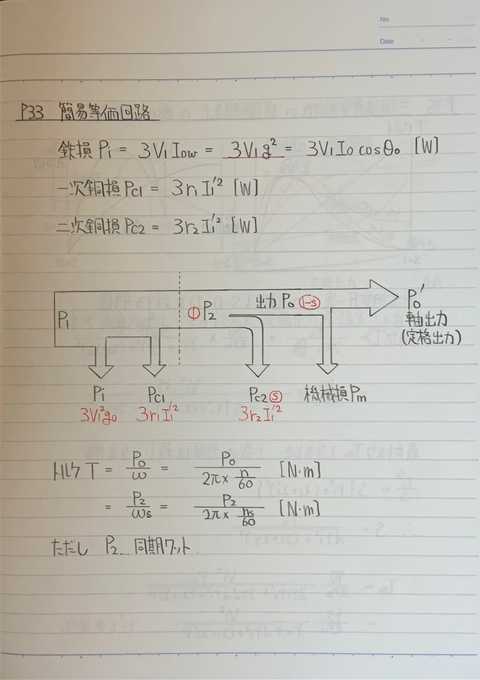 No
Date
P33 簡易等価回路
鉄損 Pi = 3V₁I₀w = 3V₁g² = 3V₁I₀ cosθ₀ [W]
一次銅損 Pc1 = 3r₁I₁'² [W]
二次銅損 Pc2 = 3r₂I₁'² [W]
P₁ ① P₂ 出力 P₀ (1-s) P₀'
軸出力
(定格出力)
Pi Pc1 Pc2 ⓢ 機械損 Pm
3V₁²g₀ 3r₁I₁'² 3r₂I₁'²
トルク T = P₀/ω = P₀/(2π × n/60) [N·m]
= P₂/ωs = P₂/(2π × ns/60) [N·m]
ただし P₂...同期ワット